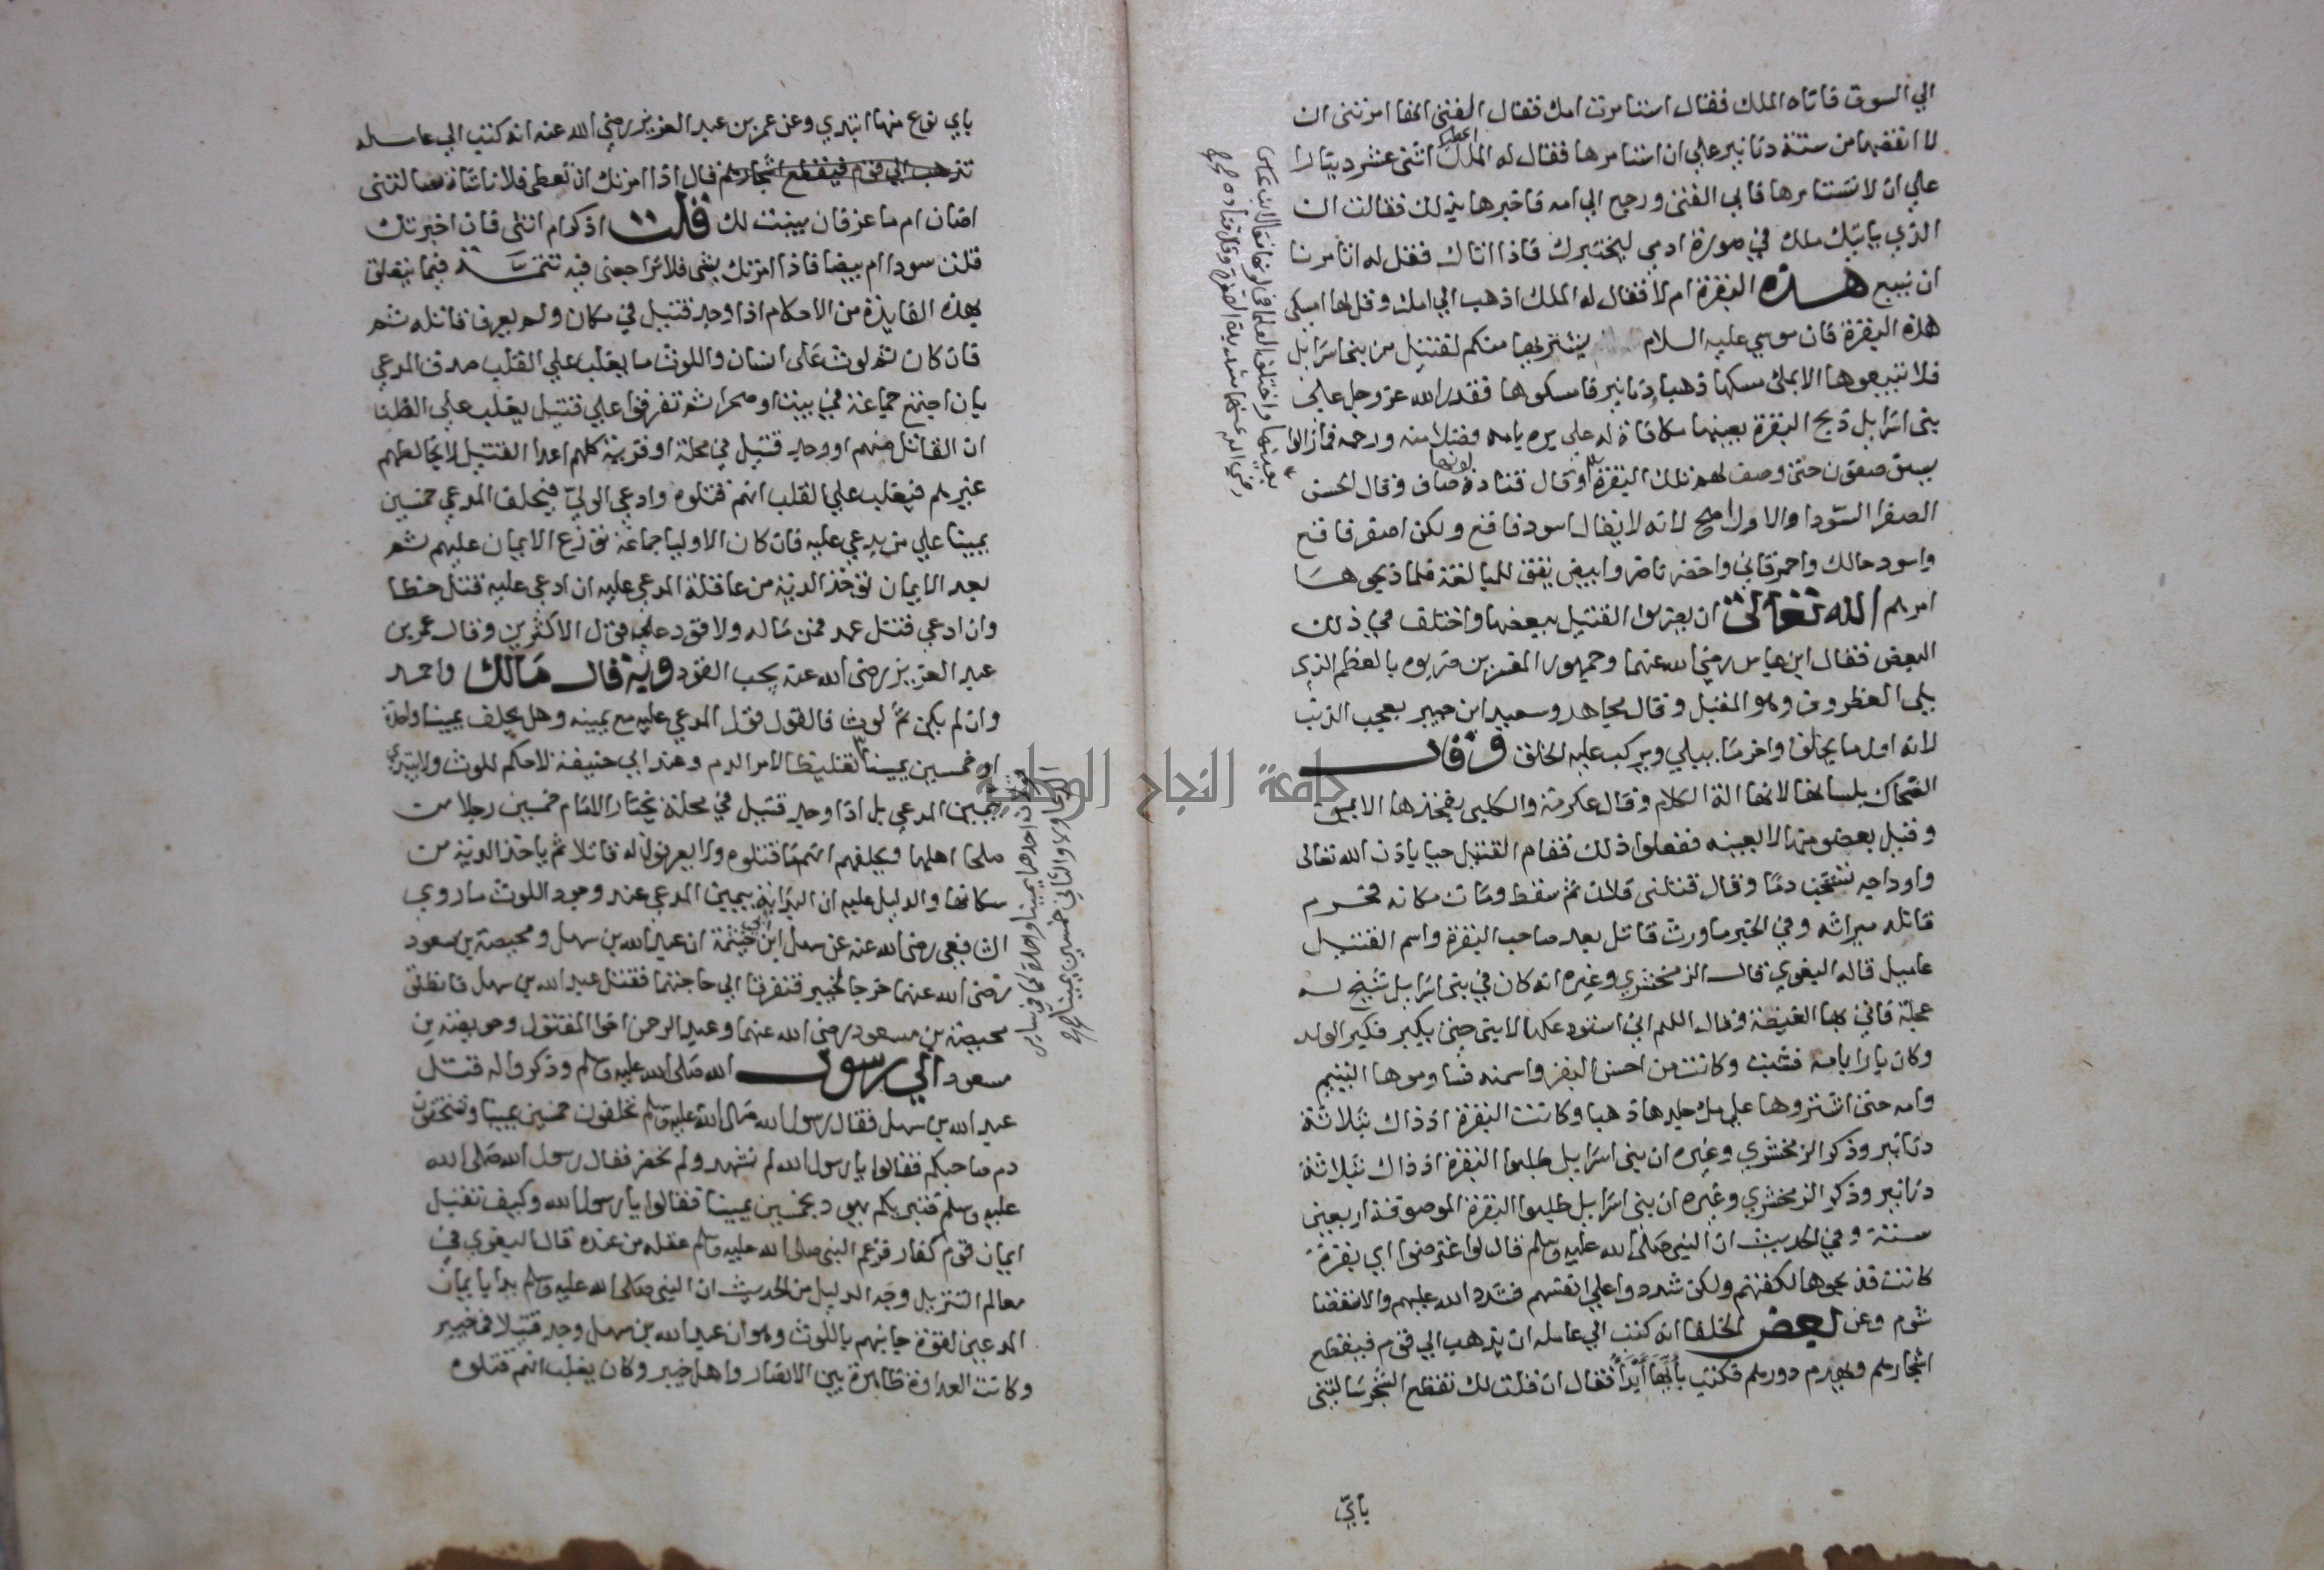 الي السوق فاتاه الملك فقال استامرت امك فقال الفتي انها امرتني ان
لا انقصها من ستة دنانير علي ان استامرها فقال له الملك اعطيك اثني عشر دينارا
علي ان لا تستامرها فابي الفتي ورجع الي امه فاخبرها بذلك فقالت ان
الذي ياتيك ملك في صورة ادمي ليختبرك فاذا اتاك فقل له اتامرنا
ان نبيع هذه البقرة ام لا فقال له الملك اذهب الي امك وقل لها امسكي
هذه البقرة فان موسي عليه السلام يشتريها منكم لقتيل من بني اسرايل
فلا تبيعوها الا بملئ مسكها ذهبا دنانير فامسكوها فقدر الله عز وجل علي
بني اسرايل ذبح البقرة بعينها مكافاة له علي بره بامه فضلا منه ورحمه فمازالوا
يستوصفون حتي وصف لهم تلك البقرة وقال قتادة صاف وقال الحسن
لونها
الصفرا السودا والاول اصح لانه لا يقال اسود فاقع ولكن اصفر فاقع
واسود حالك واحمر قاني واخضر ناضر وابيض يقق للمبالغة فلما ذبحوها
امرهم الله تعالي ان يضربوا القتيل ببعضها واختلف في ذلك
البعض فقال ابن عباس رضي الله عنهما وجمهور المفسرين ضربوه بالعظم الذي
يلي الغضروف وهو المقتل وقال مجاهد وسعيد ابن جبير بعجب الذنب
لانه اول ما يخلق واخر ما يبلي ويركب عليه الخلق وقال
الضحاك بلسانها لانها الة الكلام وقال عكرمة والكلبي بفخذها الايمن
وقيل بعضو منها لا بعينه ففعلوا ذلك فقام القتيل حيا باذن الله تعالي
واوداجه تشخب دما وقال قتلني فلان ثم سقط ومات مكانه فحرم
قاتله ميراثه وفي الخبر ما ورث قاتل بعد صاحب البقرة واسم القتيل
عاميل قاله البغوي قال الزمخشري وغيره انه كان في بني اسرايل شيخ له
عجلة فاتي بها الغيضة وقال اللهم اني استودعكها لابني حتي يكبر فكبر الولد
وكان بارا بامه فشبت وكانت من احسن البقر واسمنه فساوموها اليتيم
وامه حتي اشتروها علي ملئ جلدها ذهبا وكانت البقرة اذ ذاك بثلاثة
دنانير وذكر الزمخشري وغيره ان بني اسرايل طلبوا البقرة اذ ذاك بثلاثة
دنانير وذكر الزمخشري وغيره ان بني اسرايل طلبوا البقرة الموصوفة اربعين
سنة وفي الحديث ان النبي صلي الله عليه وسلم قال لو اعترضوا اي بقرة
كانت فذبحوها لكفتهم ولكن شددوا علي انفسهم فشدد الله عليهم والاستقصا
شوم وعن بعض الخلفا انه كتب الي عامله ان يذهب الي قوم فيقطع
اشجارهم ويهدم دورهم فكتب بأيها أبدأ فقال ان قلت لك نقطع الشجر سالتني
بأيّ
بعينها واختلف العلما في لونها فقال ابن عباس
رضي الله عنهما شديدة الصفرة وقال قتاده
باي نوع منها ابتدي وعن عمر بن عبد العزيز رضي الله عنه انه كتب الي عامله
تذهب الي قوم فيقطع اشجارهم قال اذا امرتك ان تعطي فلانا شاة سالتني
اضان ام ماعز فان بينت لك قلت اذكر ام انثي فان اخبرتك
قلت سودا ام بيضا فاذا امرتك بشي فلا تراجعني فيه تتمة فيما يتعلق
بهذه الفايدة من الاحكام اذا وجد قتيل في مكان ولم يعرف قاتله ثم
فان كان ثم لوث علي انسان واللوث ما يغلب علي القلب صدق المدعي
بان اجتمع جماعة في بيت او صحرا ثم تفرقوا علي قتيل يغلب علي الظن
ان القاتل منهم او وجد قتيل في محلة او قرية كلهم اعدا القتيل لا يخالطهم
غيرهم فيغلب علي القلب انهم قتلوه وادعي الولي فيحلف المدعي خمسين
يمينا علي من يدعي عليه فان كان الاوليا جماعة توزع الايمان عليهم ثم
بعد الايمان توخذ الدية من عاقلة المدعي عليه ان ادعي عليه قتل خطا
وان ادعي قتل عمد فمن ماله ولا قود علي قول الاكثرين وقال عمر بن
عبد العزيز رضي الله عنه يجب القود وبه قال مالك واحمد
وان لم يكن ثم لوث فالقول قول المدعي عليه مع يمينه وهل يحلف يمينا واحدة
او خمسين يمينا تغليظا لامر الدم وعند ابي حنيفة لا حكم للوث ولا يبتدي
بيمين المدعي بل اذا وجد قتيل في محلة يختار الامام خمسين رجلا من
صلحا اهلها ويحلفهم انهم ما قتلوه ولا يعرفوا له قاتلا ثم ياخذ الدية من
سكانها والدليل عليه ان البداية بيمين المدعي عند وجود اللوث ما روي
الشافعي رضي الله عنه عن سهل ابن ابي حثمة ان عبد الله بن سهل ومحيصة بن مسعود
رضي الله عنهما خرجا لخيبر فتفرقا الي حاجتهما فقتل عبد الله بن سهل فانطلق
محيصة بن مسعود رضي الله عنهما وعبد الرحمن اخو المقتول وحويصة بن
مسعود الي رسول الله صلي الله عليه وسلم وذكروا له قتل
عبد الله بن سهل فقال رسول الله صلي الله عليه وسلم تحلفون خمسين يمينا وتستحقون
دم صاحبكم فقالوا يا رسول الله لم نشهد ولم نحضر فقال رسول الله صلي الله
عليه وسلم فتبريكم يهود بخمسين يمينا فقالوا يا رسول الله وكيف نقبل
ايمان قوم كفار فزعم النبي صلي الله عليه وسلم عقله من عنده قال البغوي في
معالم التنزيل وجه الدليل من الحديث ان النبي صلي الله عليه وسلم بدا بايمان
المدعين لقوة جانبهم باللوث وهو ان عبد الله بن سهل وجد قتيلا في خيبر
وكانت العداوة ظاهرة بين الانصار واهل خيبر وكان يغلب انهم قتلوه
قولان احدهما يمينا واحدة كما في ساير
الدعاوي والثاني خمسين يمينا
جامعة النجاح الوطنية